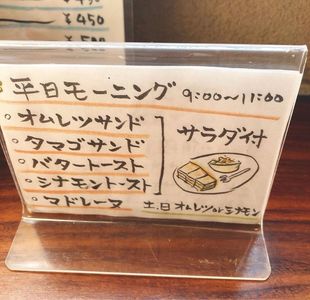 ¥450
¥500
平日モーニング 9:00〜11:00
○オムレツサンド
○タマゴサンド
○バタートースト
○シナモントースト
○マドレーヌ
サラダ付
土.日 オムレツorシナモン